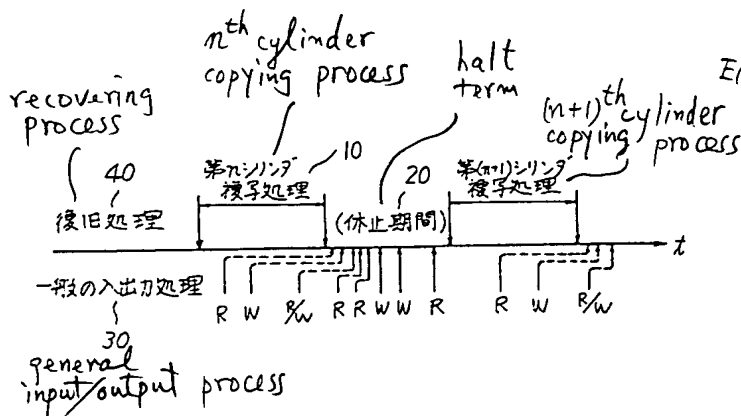 nth cylinder
copying process
halt
term
E
recovering
process
(n+1)th cylinder
copying process
40
10
20
第nシリンダ
複写処理
第(n+1)シリンダ
複写処理
復旧処理
(休止期間)
t
一般の入出力処理
R W R/W R R W W R R W R/W
30
general
input/output process